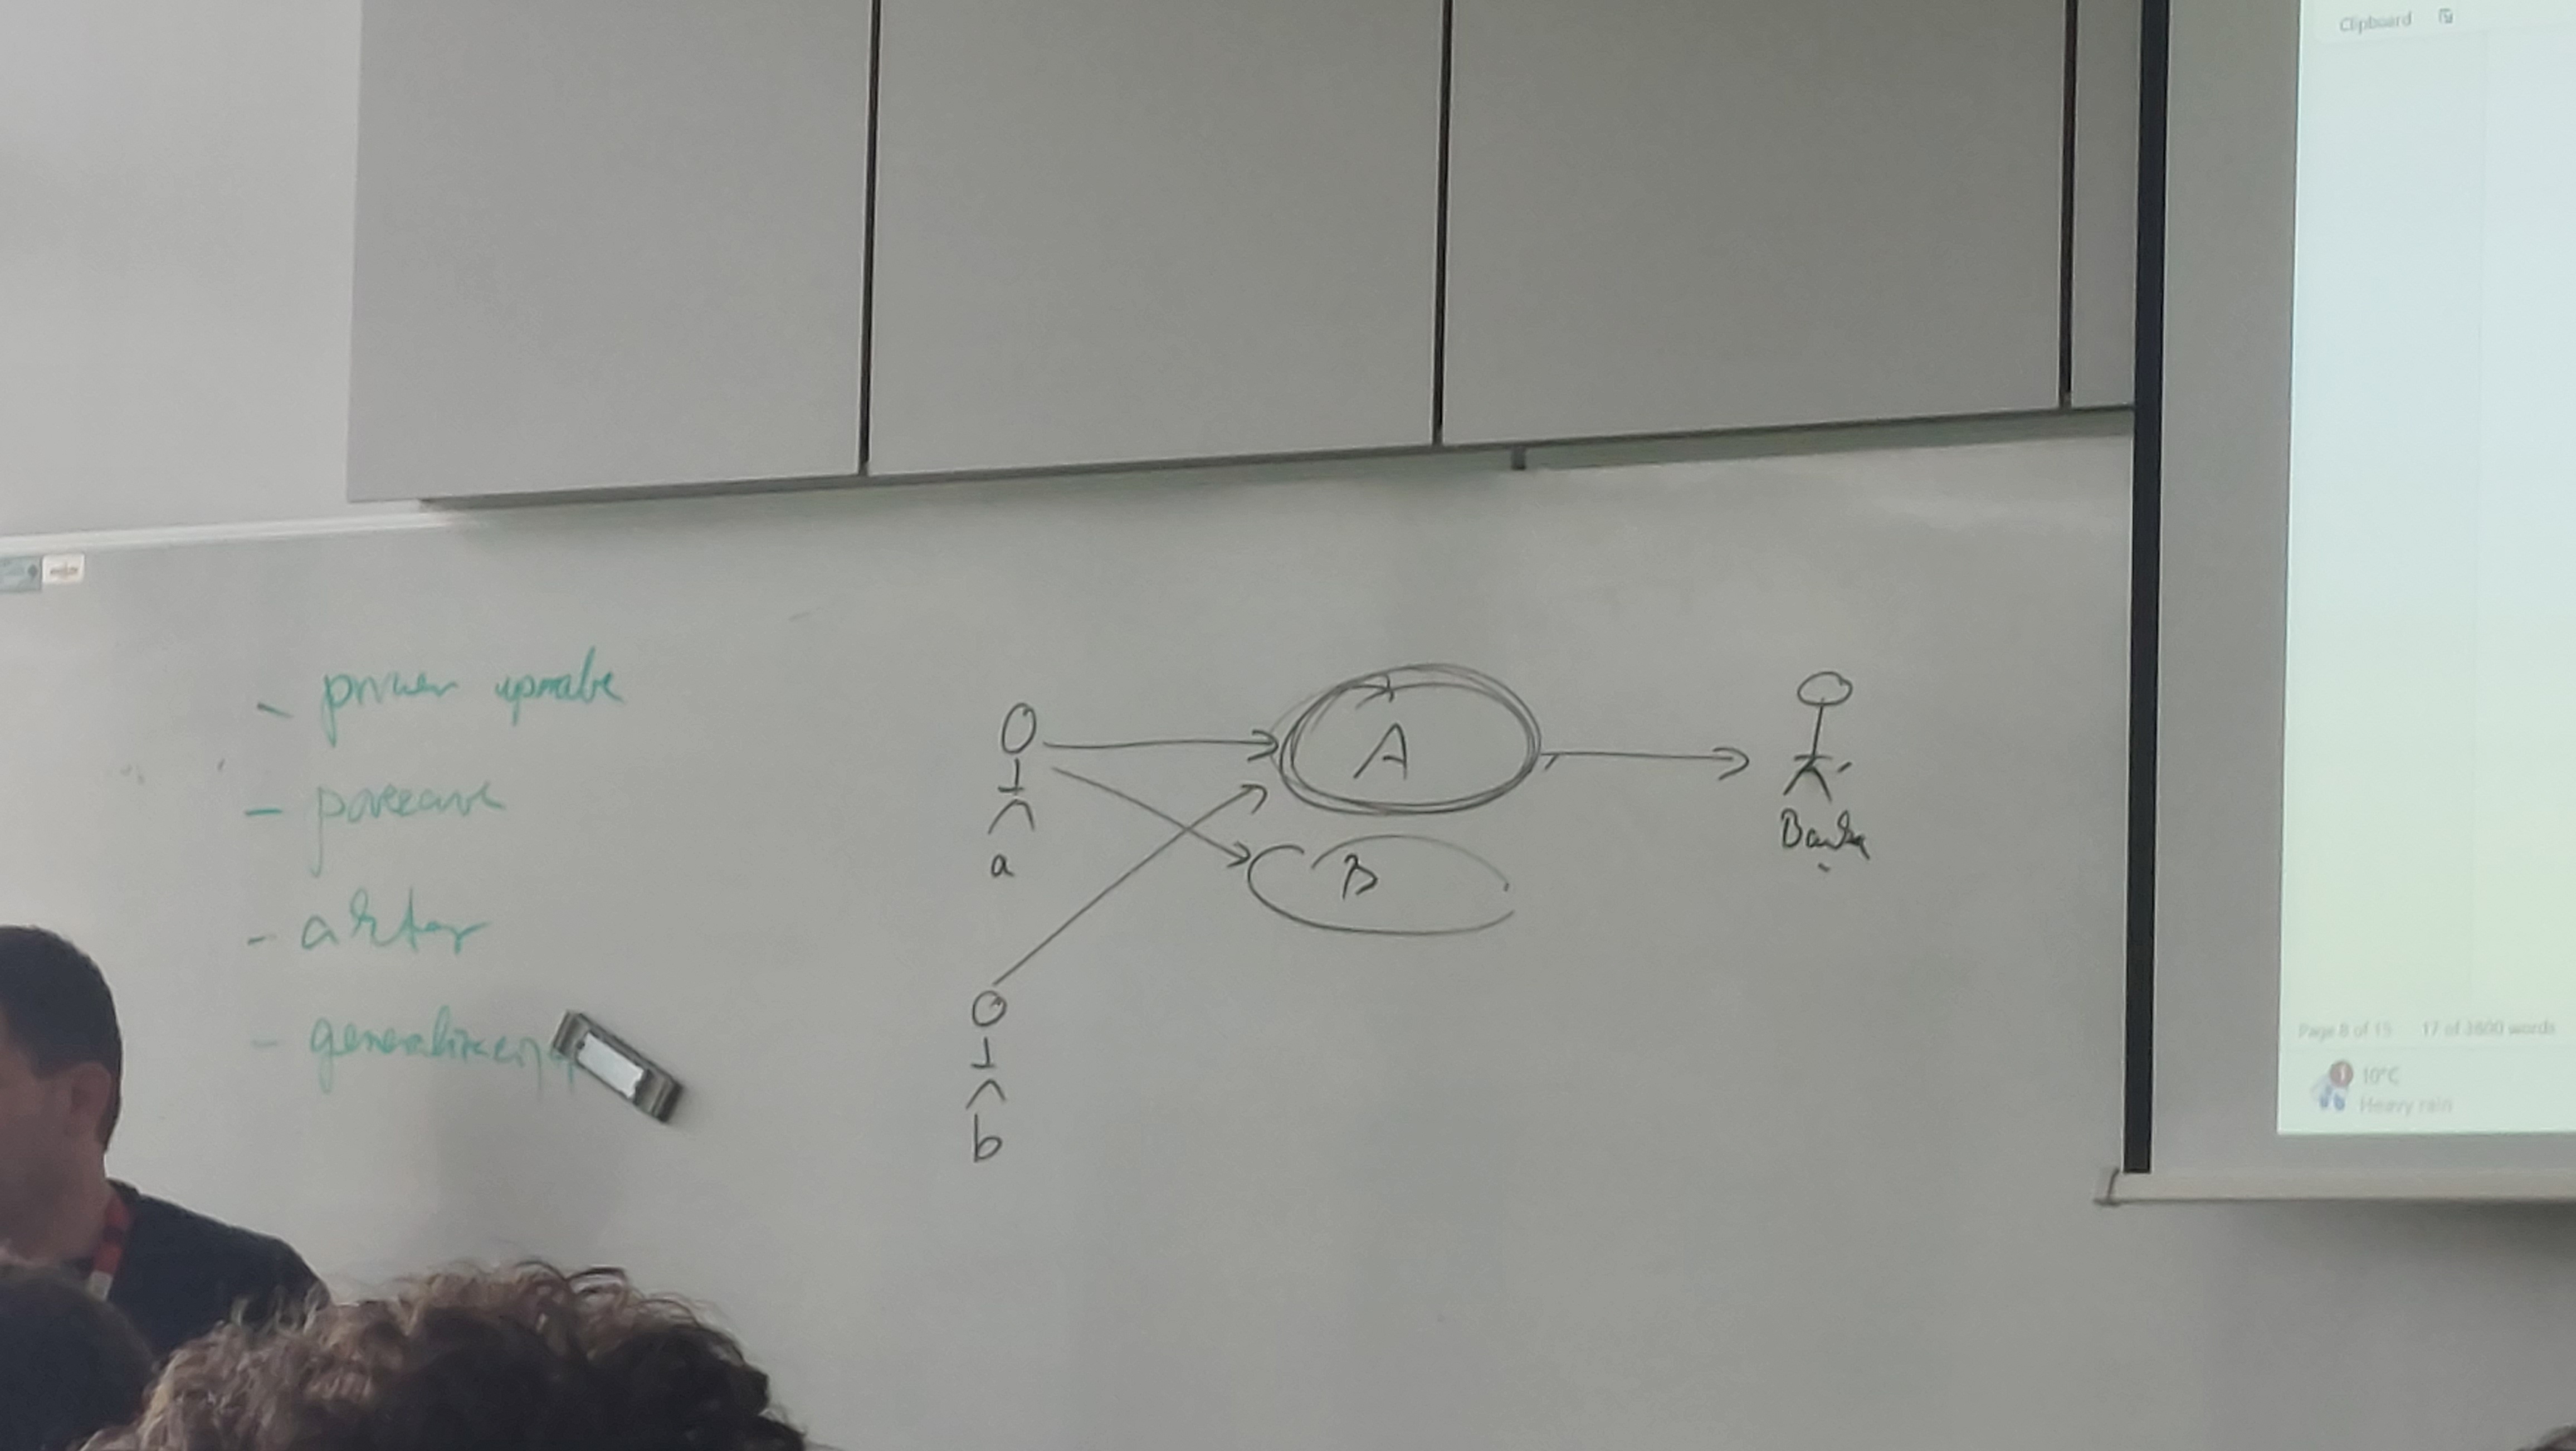 - primer uporabe
- povezave
- aktor
- generalizacija
a
A
B
Banka
b
Clipboard
Page 8 of 15 17 of 3800 words
10°C
Heavy rain